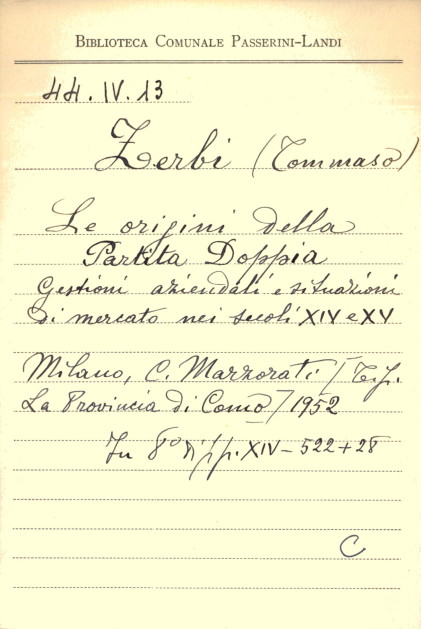 BIBLIOTECA COMUNALE PASSERINI-LANDI
44.IV.13
Zerbi (Tommaso)
Le origini della
Partita Doppia
Gestioni aziendali e situazioni
di mercato nei secoli XIV e XV
Milano, C. Marzorati [Tip.
La Provincia di Como] 1952
In 8° di pp. XIV-522+28
C